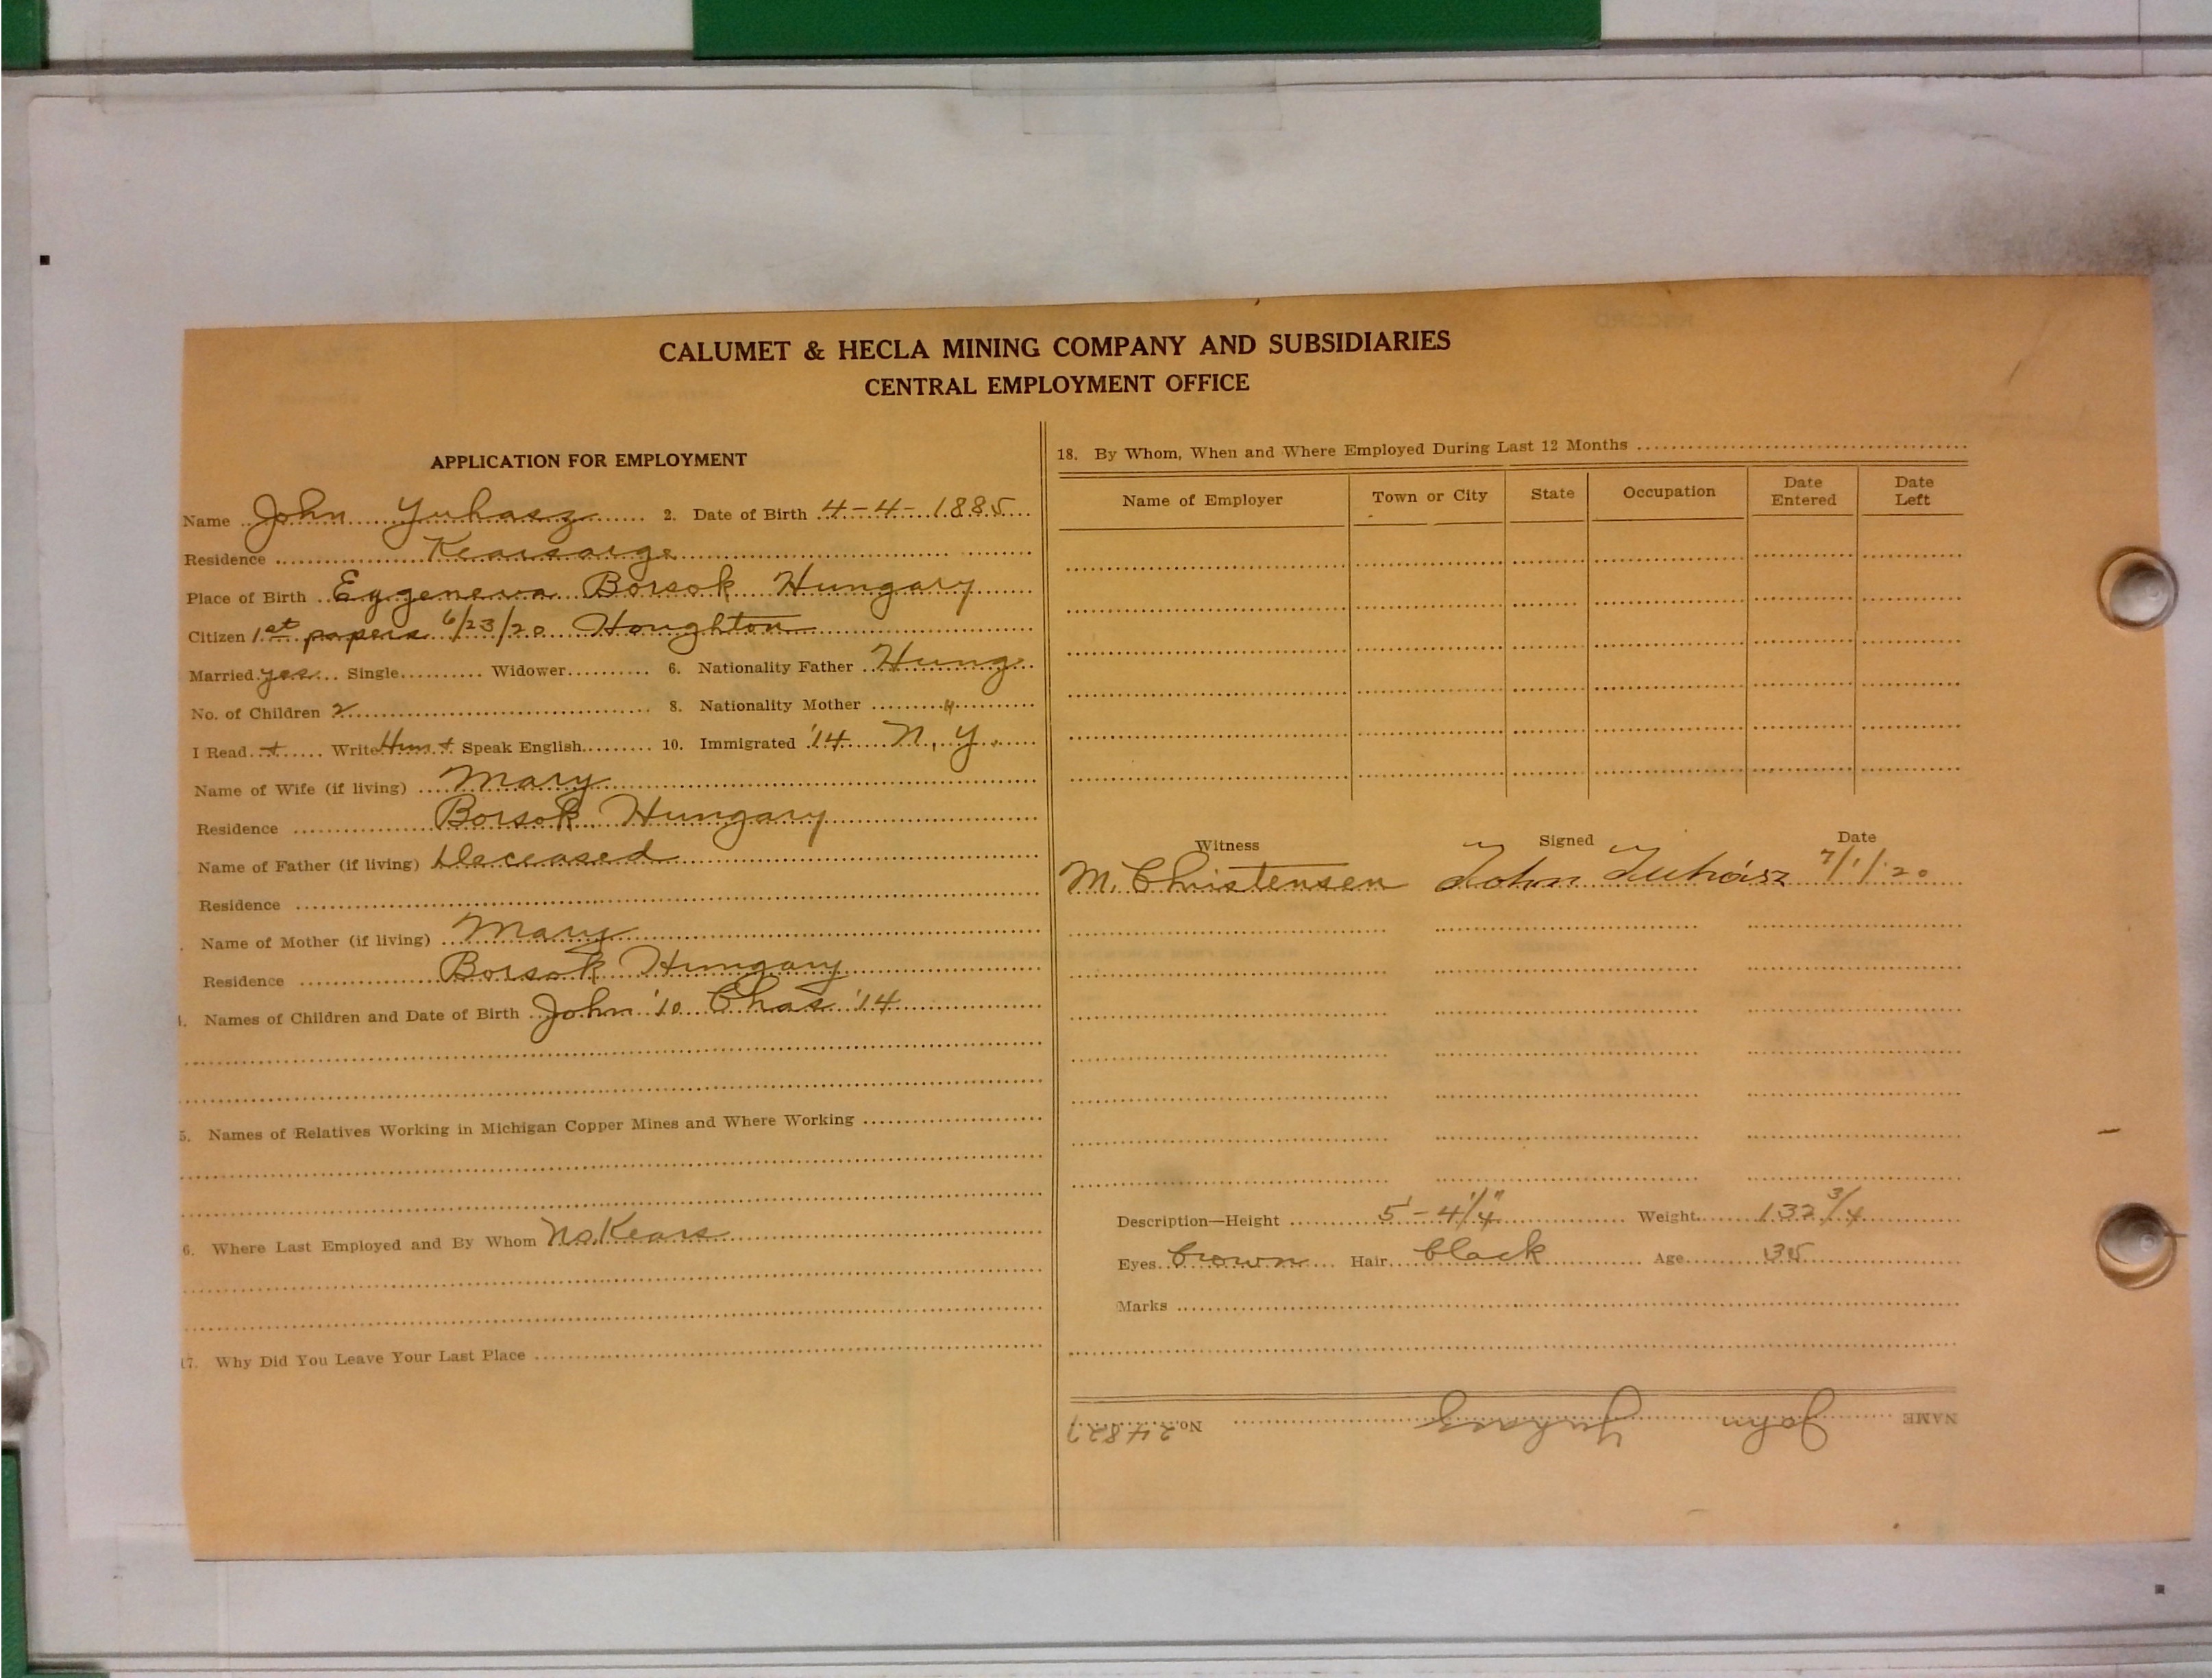 CALUMET & HECLA MINING COMPANY AND SUBSIDIARIES
CENTRAL EMPLOYMENT OFFICE
APPLICATION FOR EMPLOYMENT
Name John Yuhasz 2. Date of Birth 4-4-1885
Residence Kearsarge
Place of Birth Borsok Hungary
Citizen 1st papers 6/23/20 Houghton
Married yes Single Widower 6. Nationality Father Hung
No. of Children 2 8. Nationality Mother "
I Read + Write Hun + Speak English 10. Immigrated '14 N. Y.
Name of Wife (if living) Mary
Residence Borsok Hungary
Name of Father (if living) Deceased
Residence
Name of Mother (if living) Mary
Residence Borsok Hungary
Names of Children and Date of Birth John '10 Chas '14
5. Names of Relatives Working in Michigan Copper Mines and Where Working
6. Where Last Employed and By Whom No. Kears
17. Why Did You Leave Your Last Place
18. By Whom, When and Where Employed During Last 12 Months
Name of Employer Town or City State Occupation Date Entered Date Left
Witness Signed Date
M. Christensen John Juhász 7/1/20
Description—Height 5'-4 1/4" Weight 132 3/4
Eyes brown Hair black Age 35
Marks
NAME John Yuhasz No. 24827